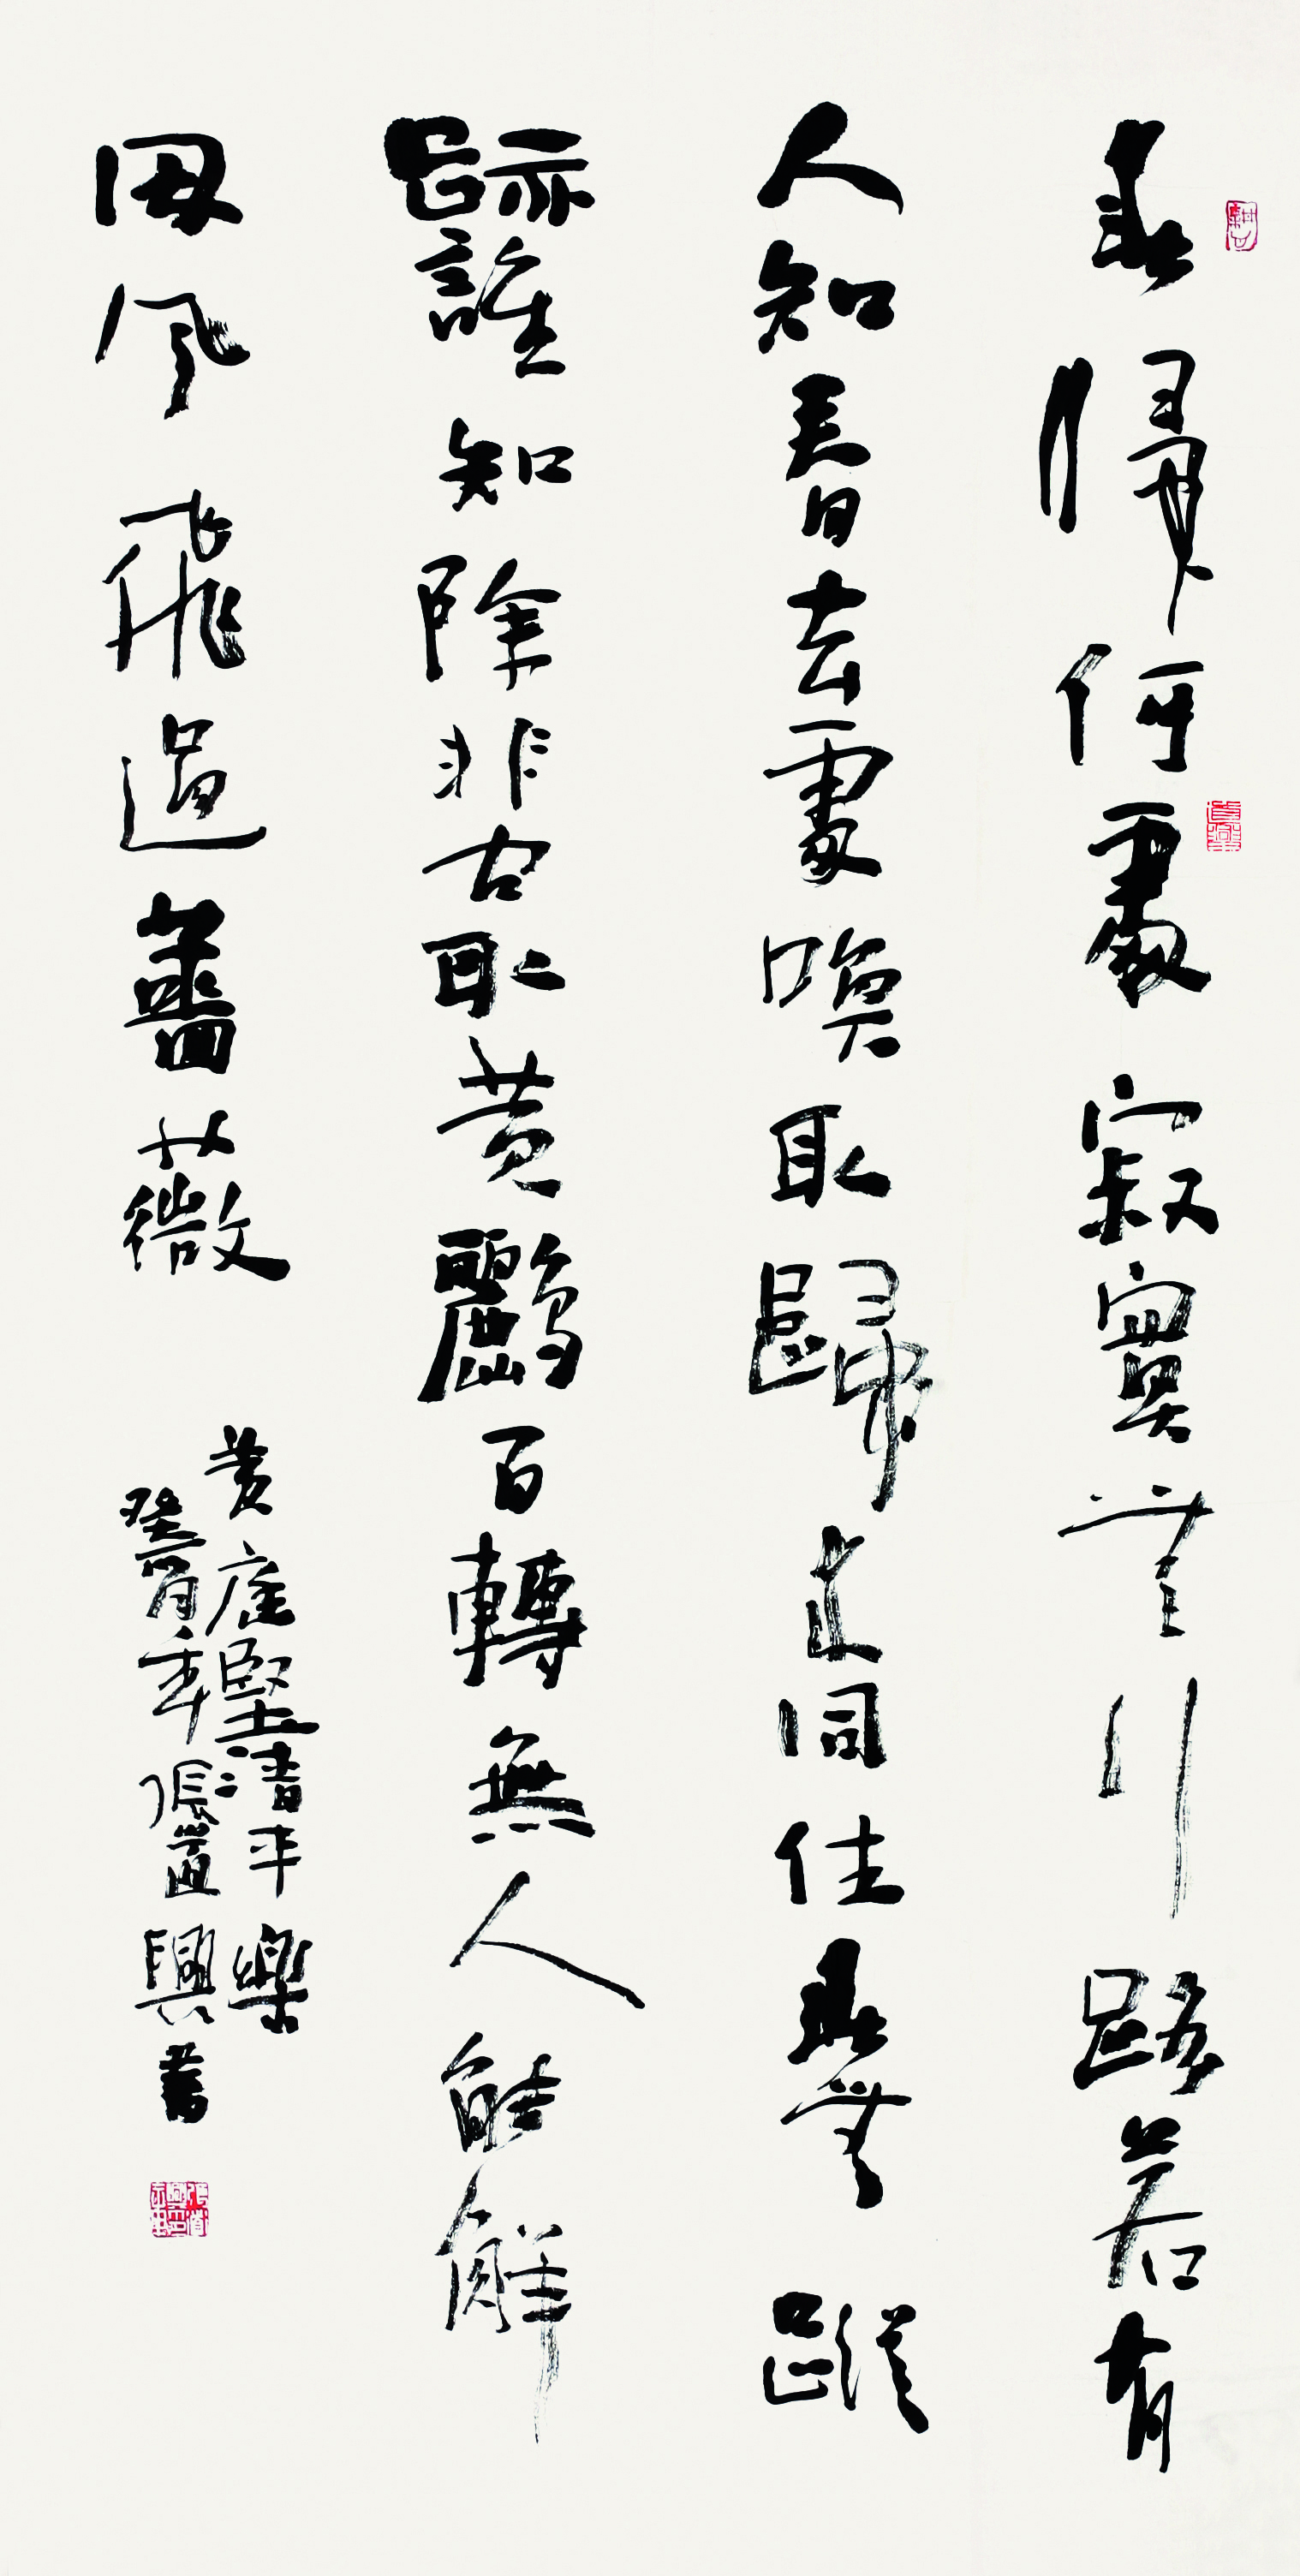 春歸何處寂寞無行路若有
人知春去處喚取歸來同住春無蹤
跡誰知除非問取黄鸝百轉無人能解
因風飛過薔薇
黄庭堅清平樂
癸年張道興書